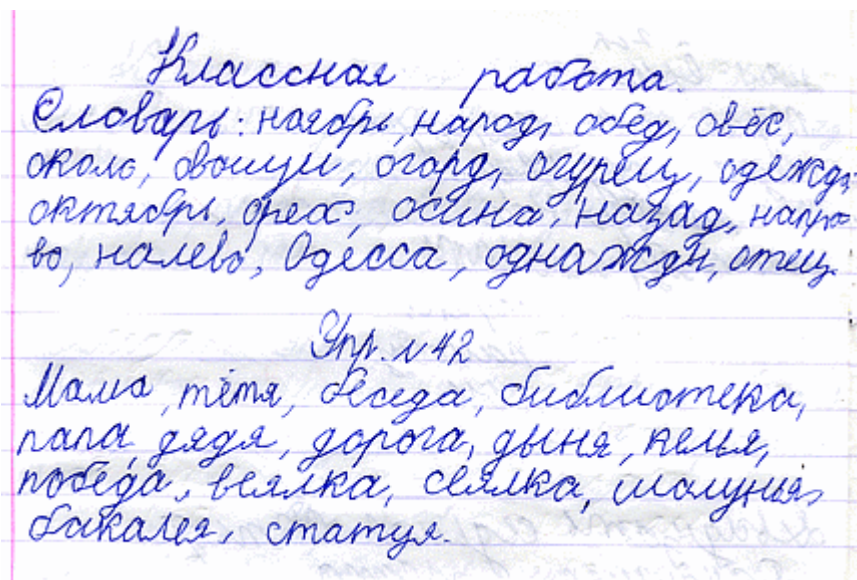 Классная работа.
Словарь: ноябрь, народ, обед, овёс,
около, овощи, огород, огурец, одежда,
октябрь, орех, осина, назад, напра-
во, налево, Одесса, однажды, отец.
Упр. № 42
Мама, тётя, беседа, библиотека,
папа, дядя, дорога, дыня, келья,
победа, веялка, сеялка, шалунья,
бакалея, статуя.